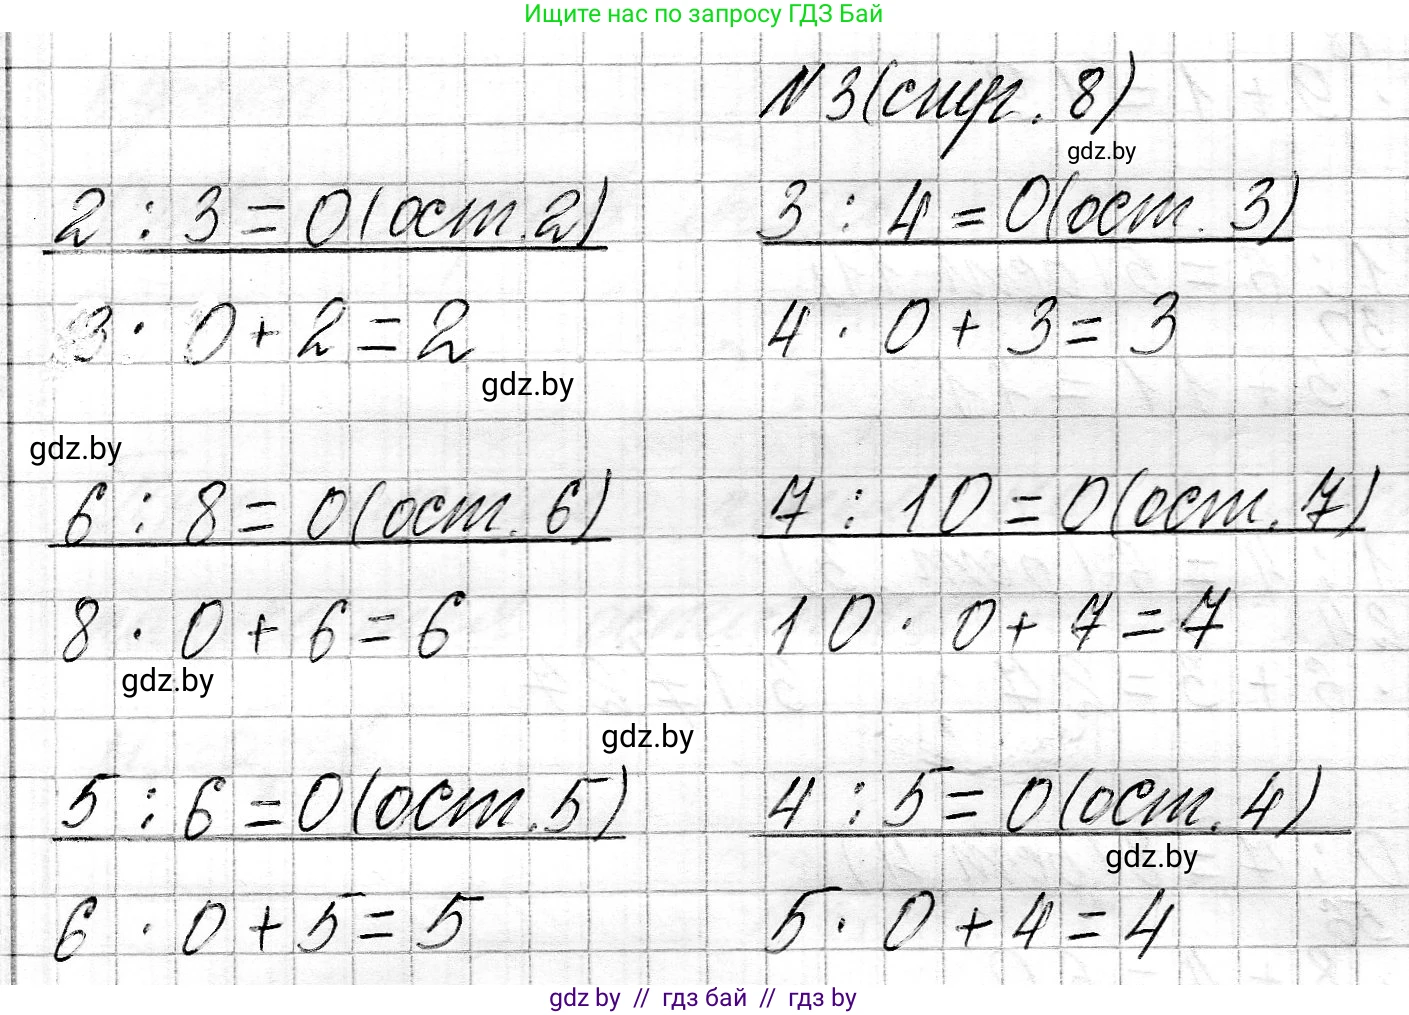 Ищите нас по запросу ГДЗ Бай
№ 3 (стр. 8)
gdz.by
2 : 3 = 0 (ост. 2) 3 : 4 = 0 (ост. 3)
3 · 0 + 2 = 2 4 · 0 + 3 = 3
gdz.by
gdz.by
6 : 8 = 0 (ост. 6) 7 : 10 = 0 (ост. 7)
8 · 0 + 6 = 6 10 · 0 + 7 = 7
gdz.by
gdz.by
5 : 6 = 0 (ост. 5) 4 : 5 = 0 (ост. 4)
gdz.by
6 · 0 + 5 = 5 5 · 0 + 4 = 4
gdz by // гдз бай // гдз by